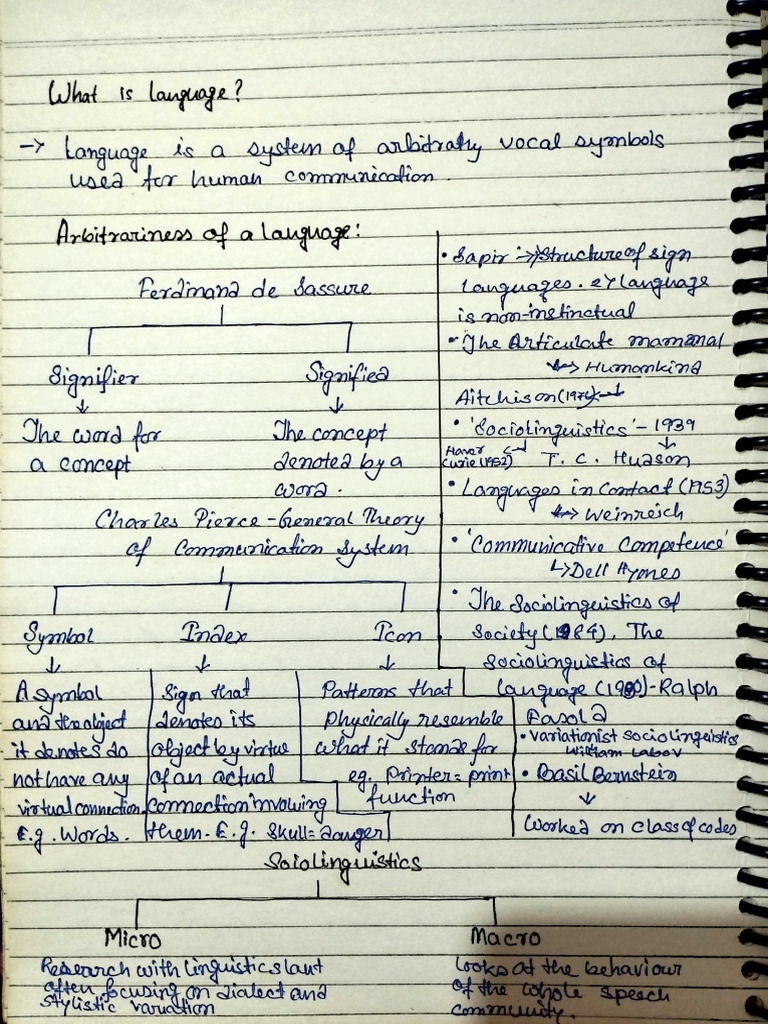 What is language?
-> Language is a system of arbitrary vocal symbols
used for human communication.
Arbitrariness of a language:
Ferdinand de Sassure
Signifier Signified
The word for
a concept
The concept
denoted by a
word.
Charles Pierce - General Theory
of Communication System
Symbol Index Icon
A symbol
and the object
it denotes do
not have any
virtual connection.
E.g. Words.
Sign that
denotes its
object by virtue
of an actual
connection involving
them. E.g. Skull = danger
Patterns that
physically resemble
what it stands for
eg. Printer = print
function
• Sapir :-> Structure of sign
languages. language
is non-instinctual
• The Articulate mammal
-> Humankind
Aitchison (1976)
• 'Sociolinguistics' - 1939
Haver
Curie (1952) T. C. Hudson
• Languages in Contact (1953)
-> Weinreich
• 'Communicative Competence'
-> Dell Hymes
• The Sociolinguistics of
Society (1984), The
Sociolinguistics of
language (1990) - Ralph
Fasold
• variationist sociolinguistics
William Labov
• Basil Bernstein
Worked on class of codes
Soiolinguistics
Micro Macro
Research with linguistic slant
often focusing on dialect and
stylistic variation
Looks at the behaviour
of the whole speech
community.